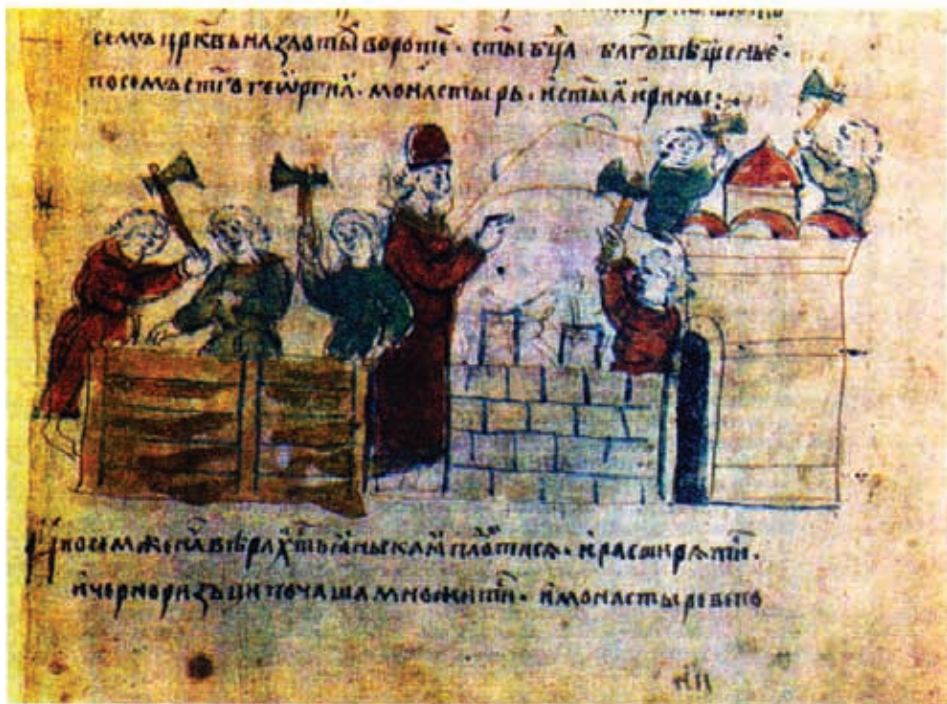 семъ црквь на злоты воротѣ · стыѣ бца · блговѣщенье ·
посемъ стго геѡргиꙗ · монастырь · и стыꙗ иринье :·
И посем же вѣра хтьꙗньскаꙗ плотисѧ · и расширѧти ·
и черноризьци почаша множити · и монастыреве по